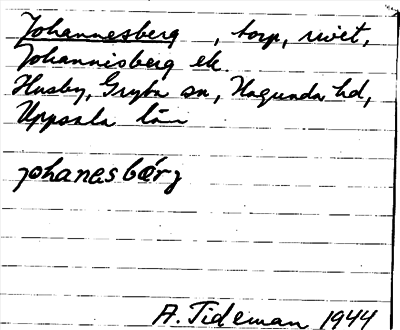 Johannesberg, torp, rivet,
Johannisberg ek.
Husby, Gryta sn, Hagunda hd,
Uppsala län
johanesbärj
A. Tideman 1944